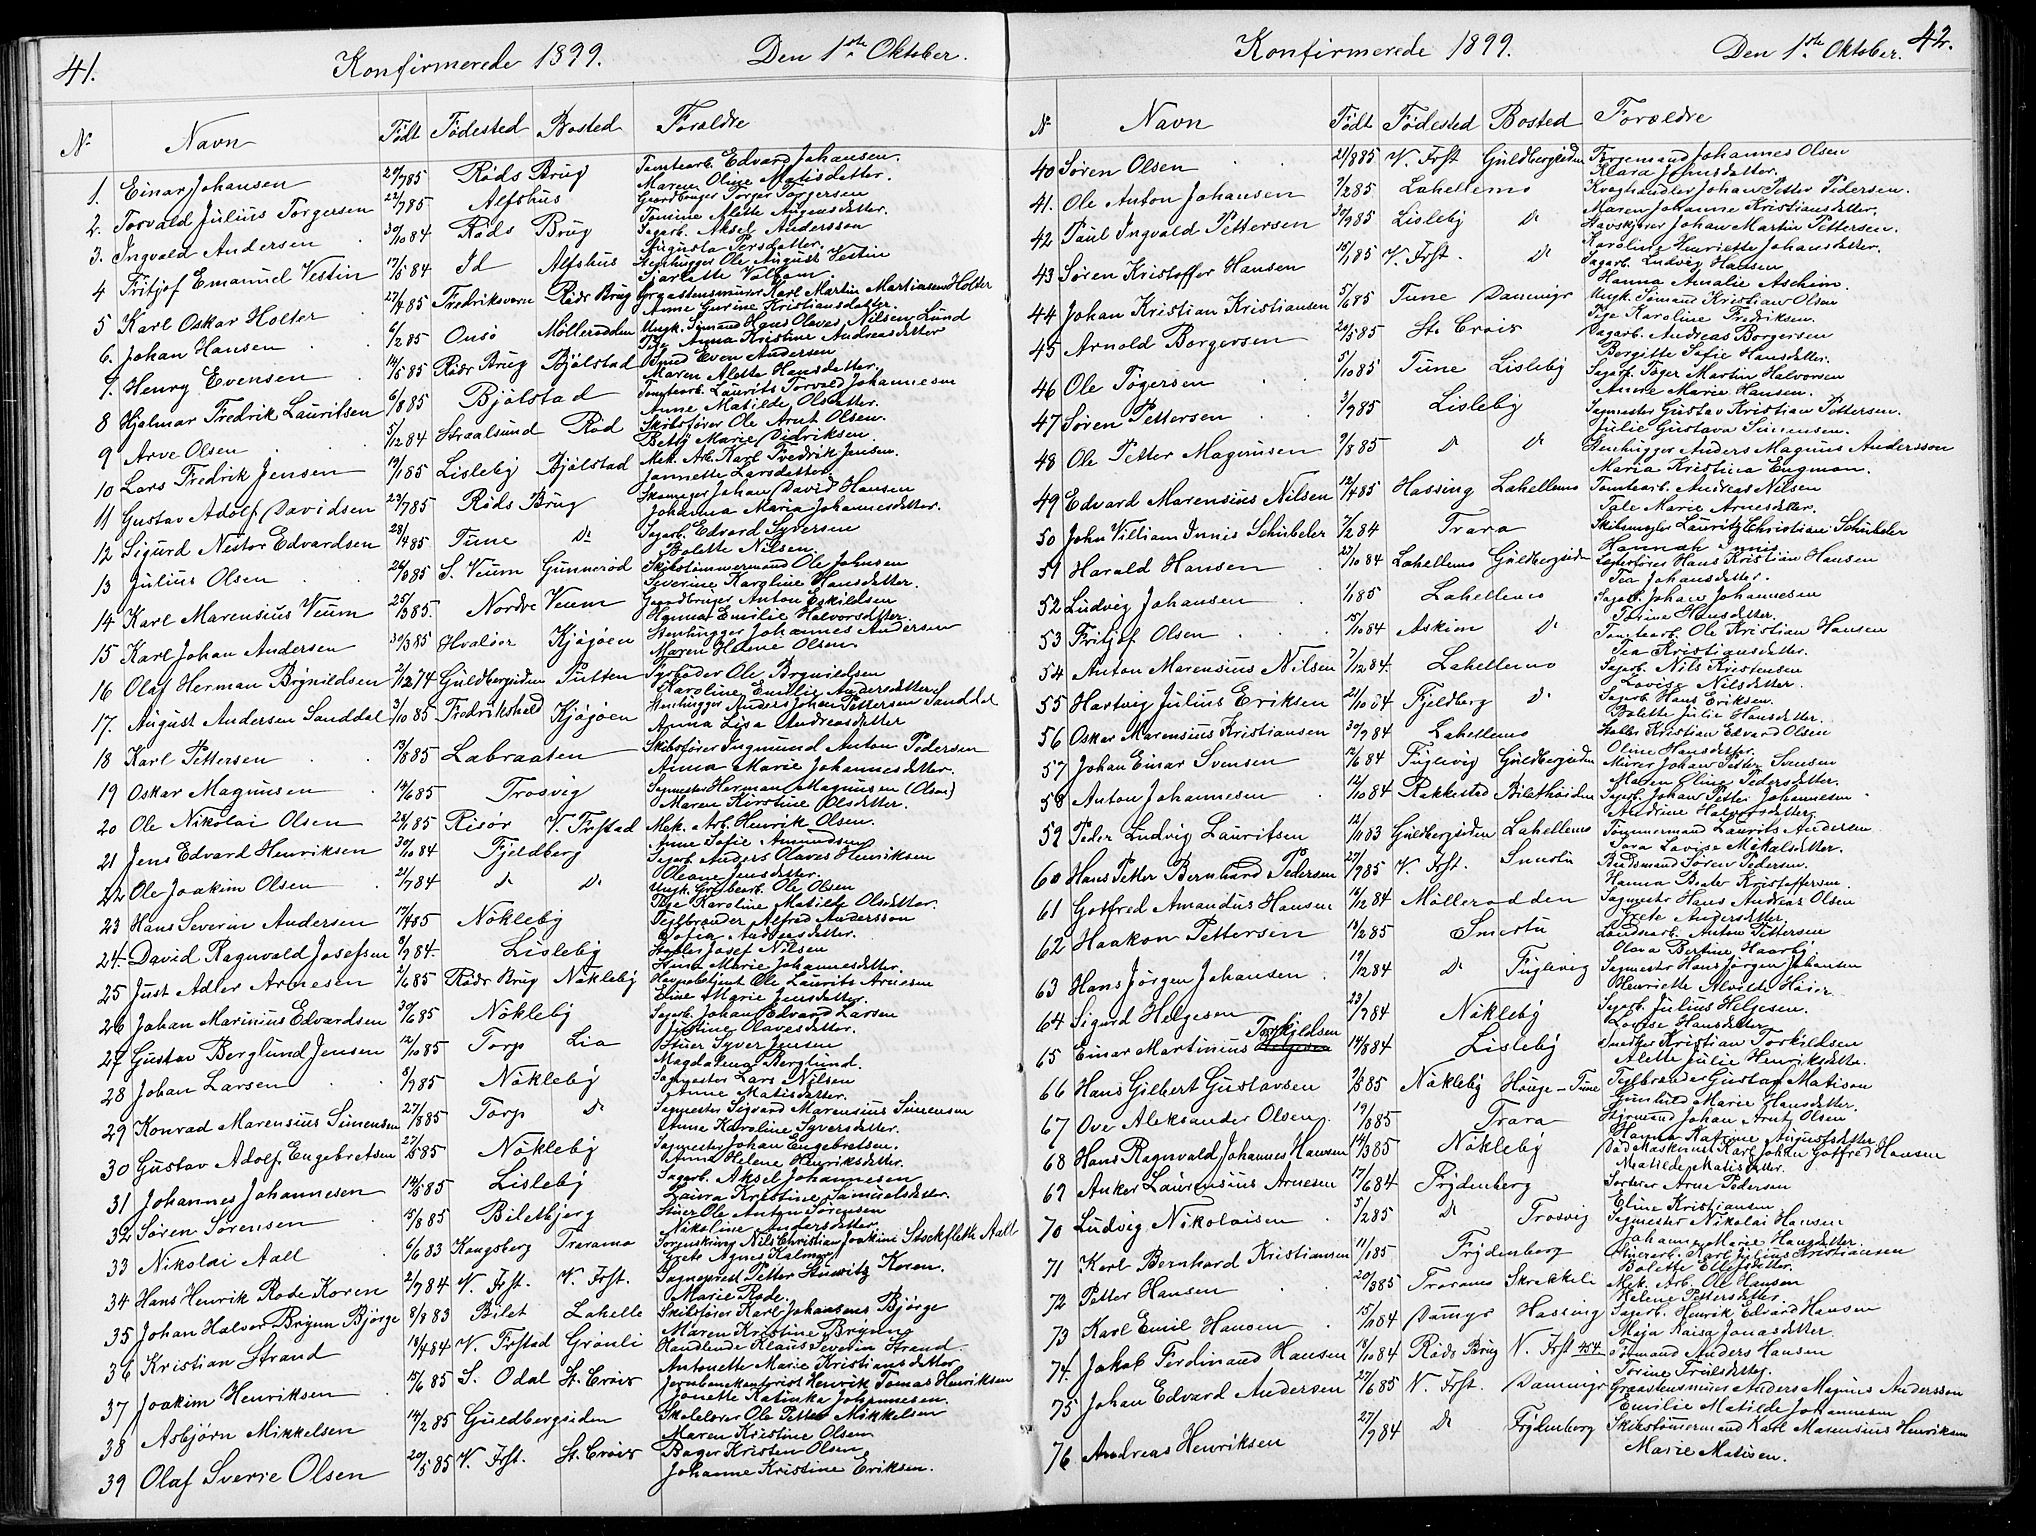 41.
Konfirmerede 1899. Den 1ste Oktober.
No Navn Födt Födested Bosted Forældre
1. Einar Johansen 20/7 85 Röds Brug Tomtearb. Edvard Johansen.
Maren Oline Matisdatter.
2. Torvald Julius Torgersen 22/7 85 Alfshus Gaardbruger Torger Torgersen
Tomine Alette Augensdatter.
3. Ingvald Andersen 30/10 84 Röds Brug Sagarb. Aksel Andersson
Augusta Persdatter.
4 Fritjof Emanuel Vestin 17/5 84 Id Alfshus Stenhugger Ole August Vestin
5 Karl Oskar Holter 27/2 85 Fredriksværn Röds Brug Graastensmurer Karl Martin Martinsen Holter
Anne Gurine Kristiansdatter.
6. Johan Hansen 6/2 85 Onsö Mölleradden Ungk. Sömand Hans Olaves Nilsen Lund
Pige Anna Kristine Andreasdatter
7. Henry Evensen 14/5 85 Röds Brug Bjölstad Smed Even Andersen
Maren Alette Hansdatter.
8 Hjalmar Fredrik Lauritsen 6/8 85 Bjölstad Tomtearb. Laurits Torvald Johannesen
Anne Matilde Olsdatter.
9 Arve Olsen 5/12 84 Straalsund Rød Skibsförer Ole Arnt Olsen.
Betty Marie Didriksen.
10 Lars Fredrik Jensen 19/1 85 Lisleby Bjölstad Mek. Arb. Karl Fredrik Jensen.
Jannette Larsdatter.
11 Gustav Adolf Davidsen 23/7 85 Röds Brug Skomager Johan David Hansen
Johanna Maria Johannesdatter.
12 Sigurd Nestor Edvardsen 28/4 85 Tune Do Sagarb. Edvard Syversen
Bolette Nilsen.
13 Julius Olsen 26/3 85 S. Veum Gunneröd Skibstömmermand Ole Johnsen
Severine Karoline Hansdatter.
14 Karl Marensius Veum 25/3 85. Nordre Veum Gaardbruger Anton Eskildsen
Hanna Emilie Halvorsdatter.
15 Karl Johan Andersen 30/3 85 Hvalöer Kjöjöen Stenhugger Johannes Andersen
Maren Helene Olsen
16 Olaf Herman Brynildsen 2/12 74 Guldbergsiden Putten Fyrböder Ole Brynildsen
Karoline Emilie Andersdatter
17. August Andersen Sanddal 3/10 85 Fredrikshald Kjöjöen Stenhugger Anders Johan Pettersen Sanddal
Anna Lisa Andreasdatter
18 Karl Pettersen 13/8 85 Labraaten Skibsförer Ingmund Anton Pedersen
Anna Marie Johannesdatter.
19 Oskar Magnusen 14/6 85 Trosvig Sagmester Herman Magnusen (Olsen)
Maren Kirstine Olsdatter.
20 Ole Nikolai Olsen 28/1 85 Risör V. Frstad Mek. Arb. Henrik Olsen.
Anne Sofie Amundsen
21 Jens Edvard Henriksen 30/10 84 Fjeldberg Sagarb. Anders Olaves Henriksen
Oleane Jensdatter.
22 Ole Joakim Olsen 21/7 84 Do Do Ungk. Grubearb. Ole Olsen
Pige Karoline Matilde Olsdatter.
23 Hans Severin Andersen 17/4 85 Nökleby Teglbrænder Alfred Andersson
Sofia Andersdatter.
24. David Ragnvald Josefsen 8/9 84. Lisleby Stabler Josef Nilsen
Stina Marie Johannesdatter.
25 Just Adler Arnesen 2/6 85 Röds Brug Nökleby Havnebetjent Ole Laurits Arnesen
Eline Marie Jensdatter.
26 Johan Marinius Edvardsen 30/6 85 Nökleby Sagarb. Johan Edvard Larsen
Justine Olavesdatter.
27 Gustav Berglund Jensen 12/10 85 Torp Lia Stuer Syver Jensen
Magdalena Berglund.
28 Johan Larsen 8/7 85 Nökleby Sagmester Lars Nilsen
Anne Matisdatter.
29 Konrad Marensius Simensen 27/8 85 Torp Do Sagmester Sigvard Marensius Simensen
Anne Karoline Syversdatter.
30 Gustav Adolf Engebretsen 27/5 85 Nökleby Sagmester Johan Engebretsen.
Anna Helene Henriksdatter.
31 Johannes Johannesen 14/5 85 Lisleby Sagarb. Aksel Johannesen
Laura Kristine Samuelsdatter.
32 Sören Sörensen 15/8 85 Biletbjerg Stuer Ole Anton Sörensen
Nikoline Andersdatter.
33 Nikolai Aall 6/6 83 Kongsberg Traramo Sorenskriver Nils Christian Joakim Stockfleth Aall
Grete Agnes Kalmar
34 Hans Henrik Rode Koren 2/7 84 V. Frst. V. Frst. Sogneprest Petter Stuwitz Koren.
Marie Rode.
35 Johan Halvor Brynn Björge 8/8 83 Bilet Lahelle Skibsförer Karl Johansens Björge
Maren Kristine Brynn
36 Kristian Strand 13/4 84 V. Frstad Grönli Handlende Klaus Severin Strand.
Antonette Marie Kristiansdatter
37 Joakim Henriksen 15/6 85 S. Odal St. Croix Jernbanekontorist Henrik Tomas Henriksen
Jonette Katinka Johannesen.
38 Asbjörn Mikkelsen 14/2 85 Guldbergsiden Skolelærer Ole Petter Mikkelsen
Maren Kristine Olsen
39 Olaf Sverre Olsen 20/5 85 V. Frst. St. Croix Bager Kristen Olsen
Johanne Kristine Eriksen.
42.
Konfirmerede 1899. Den 1ste Oktober.
No Navn Födt Födested Bosted Forældre
40 Sören Olsen 21/8 85 V. Frst Guldbergsiden Færgemand Johannes Olsen
Klara Jensdatter.
41. Ole Anton Johansen 7/2 85 Lahellemo Kvæghandler Johan Petter Pedersen.
Maren Johanne Kristiansdatter.
42 Paul Ingvald Pettersen 30/9 85 Lisleby Do Havskjører Johan Martin Pettersen.
Karoline Henriette Johansdatter.
43 Sören Kristoffer Hansen 15/1 85 V. Frst. Do Sagarb. Ludvig Hansen
Hanna Amalie Aschim.
44 Johan Kristian Kristiansen 5/6 85 Tune Dammyr Ungk. Sömand Kristian Olsen
Pige Karoline Fredriksen.
45 Arnold Borgersen 20/5 85 St. Croix Sagarb. Andreas Borgersen
Borgitte Sofie Hansdatter.
46 Ole Tögersen 5/10 85 Tune Lisleby Sagef. Töger Martin Halvorsen
Anne Marie Hansen.
47 Sören Pettersen 3/9 85 Lisleby Sagmester Gustav Kristian Pettersen.
Julie Gustava Simensen.
48 Ole Petter Magnusen 9/8 85 Do Do Stenhugger Anders Magnus Andersson
Maria Kristina Engman.
49 Edvard Marensius Nilsen 12/4 85 Hassing Lahellemo Tomtearb. Andreas Nilsen
Tale Marie Arnesdatter.
50 John Villiam Innis Schübeler 7/2 84 Trara Skibsmegler Lauritz Christian Schübeler
Hannah Innes
51 Harald Hansen 27/10 84 Lahellemo Guldbergsiden Hans Kristian Hansen
Tea Johansdatter.
52 Ludvig Johansen 1/1 85 Lahellemo Sagarb. Johan Johannesen
Tomine Hansdatter.
53 Fritjof Olsen 15/10 84 Askim Do Tomtearb. Ole Kristian Hansen
Tea Kristiansdatter.
54 Anton Marensius Nilsen 7/12 84. Lahellemo Sagarb. Nils Kristensen
Lovise Nilsdatter.
55 Hartvig Julius Eriksen 21/10 84 Fjeldberg Do Sagarb. Hans Eriksen.
Bolette Julie Hansdatter.
56 Oskar Marensius Kristiansen 30/9 84 Lahellemo Stabler Kristian Edvard Olsen
Oline Hansdatter.
57 Johan Einar Svensen 12/6 84 Fuglevig Guldbergsiden Murer Johan Petter Svensen
Maren Oline Pedersdatter.
58 Anton Johannesen 12/10 84 Rakkestad Bilethöiden Sagarb. Johan Petter Johannesen
59 Peder Ludvig Lauritsen 12/11 83 Guldbergsiden Lahellemo Tömmermand Laurits Andersen
Tora Lovise Mikalsdatter.
60 Hans Petter Bernhard Pedersen 27/7 85 V. Frst. Smertu Budsmand Sören Pedersen.
Hanna Beate Kristoffersen.
61 Gotfred Amandus Hansen 16/12 84 Mölleradden Sagmester Hans Andreas Olsen
Grete Andersdatter.
62 Haakon Pettersen 13/2 85 Smertu Landsarb. Anton Pettersen
Olava Bertine Haarby
63 Hans Jörgen Johansen 19/12 84 Do Fuglevig Sagmester Hans Jörgen Johansen
Henriette Alvilde Höier
64 Sigurd Helgesen 23/9 84 Nökleby Sagarb. Julius Helgesen.
Lovise Hansdatter
65 Einar Martinius Torkjeldsen 14/8 84 Lisleby Snedker Kristian Torkildsen
Alette Julie Henriksdatter.
66 Hans Gilbert Gustavsen 2/5 85 Nökleby Hauge-Tune Teglbrænder Gustav Matison
Gunhild Marie Hansdatter.
67 Ove Aleksander Olsen 19/8 85 Trara Styrmand Johan Arntz Olsen
Hanna Katrine Augustsdatter
68 Hans Ragnvald Johannes Hansen 14/3 85 Nökleby Död Maskinist Karl Johan Gotfred Hansen
Matilde Matisdatter.
69 Anker Laurensius Arnesen 17/6 84 Frydenberg Sorterer Arne Pedersen
Eline Kristiansen
70 Ludvig Nikolaisen 5/2 85 Do Trosvig Sagmester Nikolai Hansen
Johanne Marie Hansdatter.
71 Karl Bernhard Kristiansen 11/1 85 Frydenberg Stuerarb. Karl Julius Kristiansen
Bolette Ellefsdatter.
72 Petter Hansen 20/3 85 Traramo Skrekkeli Mek. Arb. Ole Hansen
Helene Pettersdatter.
73 Karl Emil Hansen 15/10 84 Damyr Hassing Sagarb. Henrik Edvard Hansen
Maja Kaisa Jonasdatter.
74. Jakob Ferdinand Hansen 13/10 84 Röds Brug V. Frst 454 Formand Anders Hansen
Torine Trulsdatter.
75 Johan Edvard Andersen 27/6 85 V. Frst. Dammyr Graastensmurer Anders Magnus Andersson
Emilie Matilde Johannesen
76 Andreas Henriksen 27/9 84 Do Frydenberg Skibstömmermand Karl Marensius Henriksen
Marie Matisen.